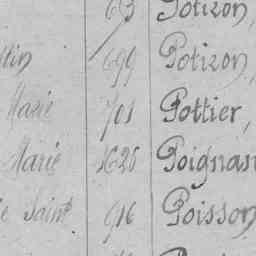 Potizon,
tin 699 Potizon,
Marie 701 Pottier,
Marie 1626 Poignan
e Saint 916 Poisson